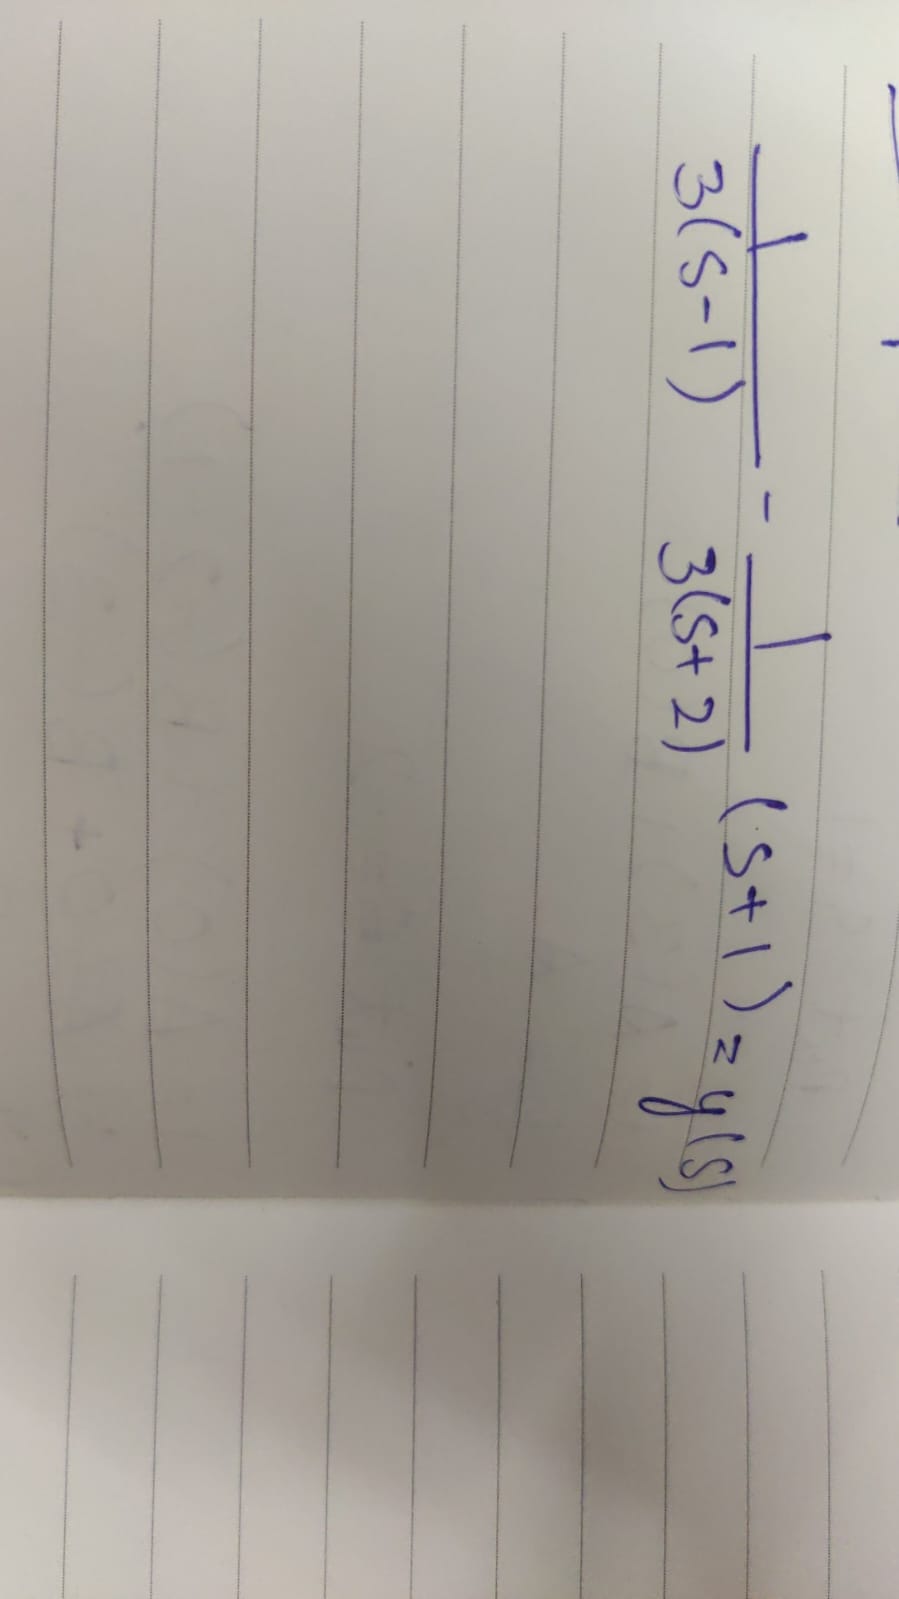 1/3(s-1) - 1/3(s+2) (s+1) = y(s)